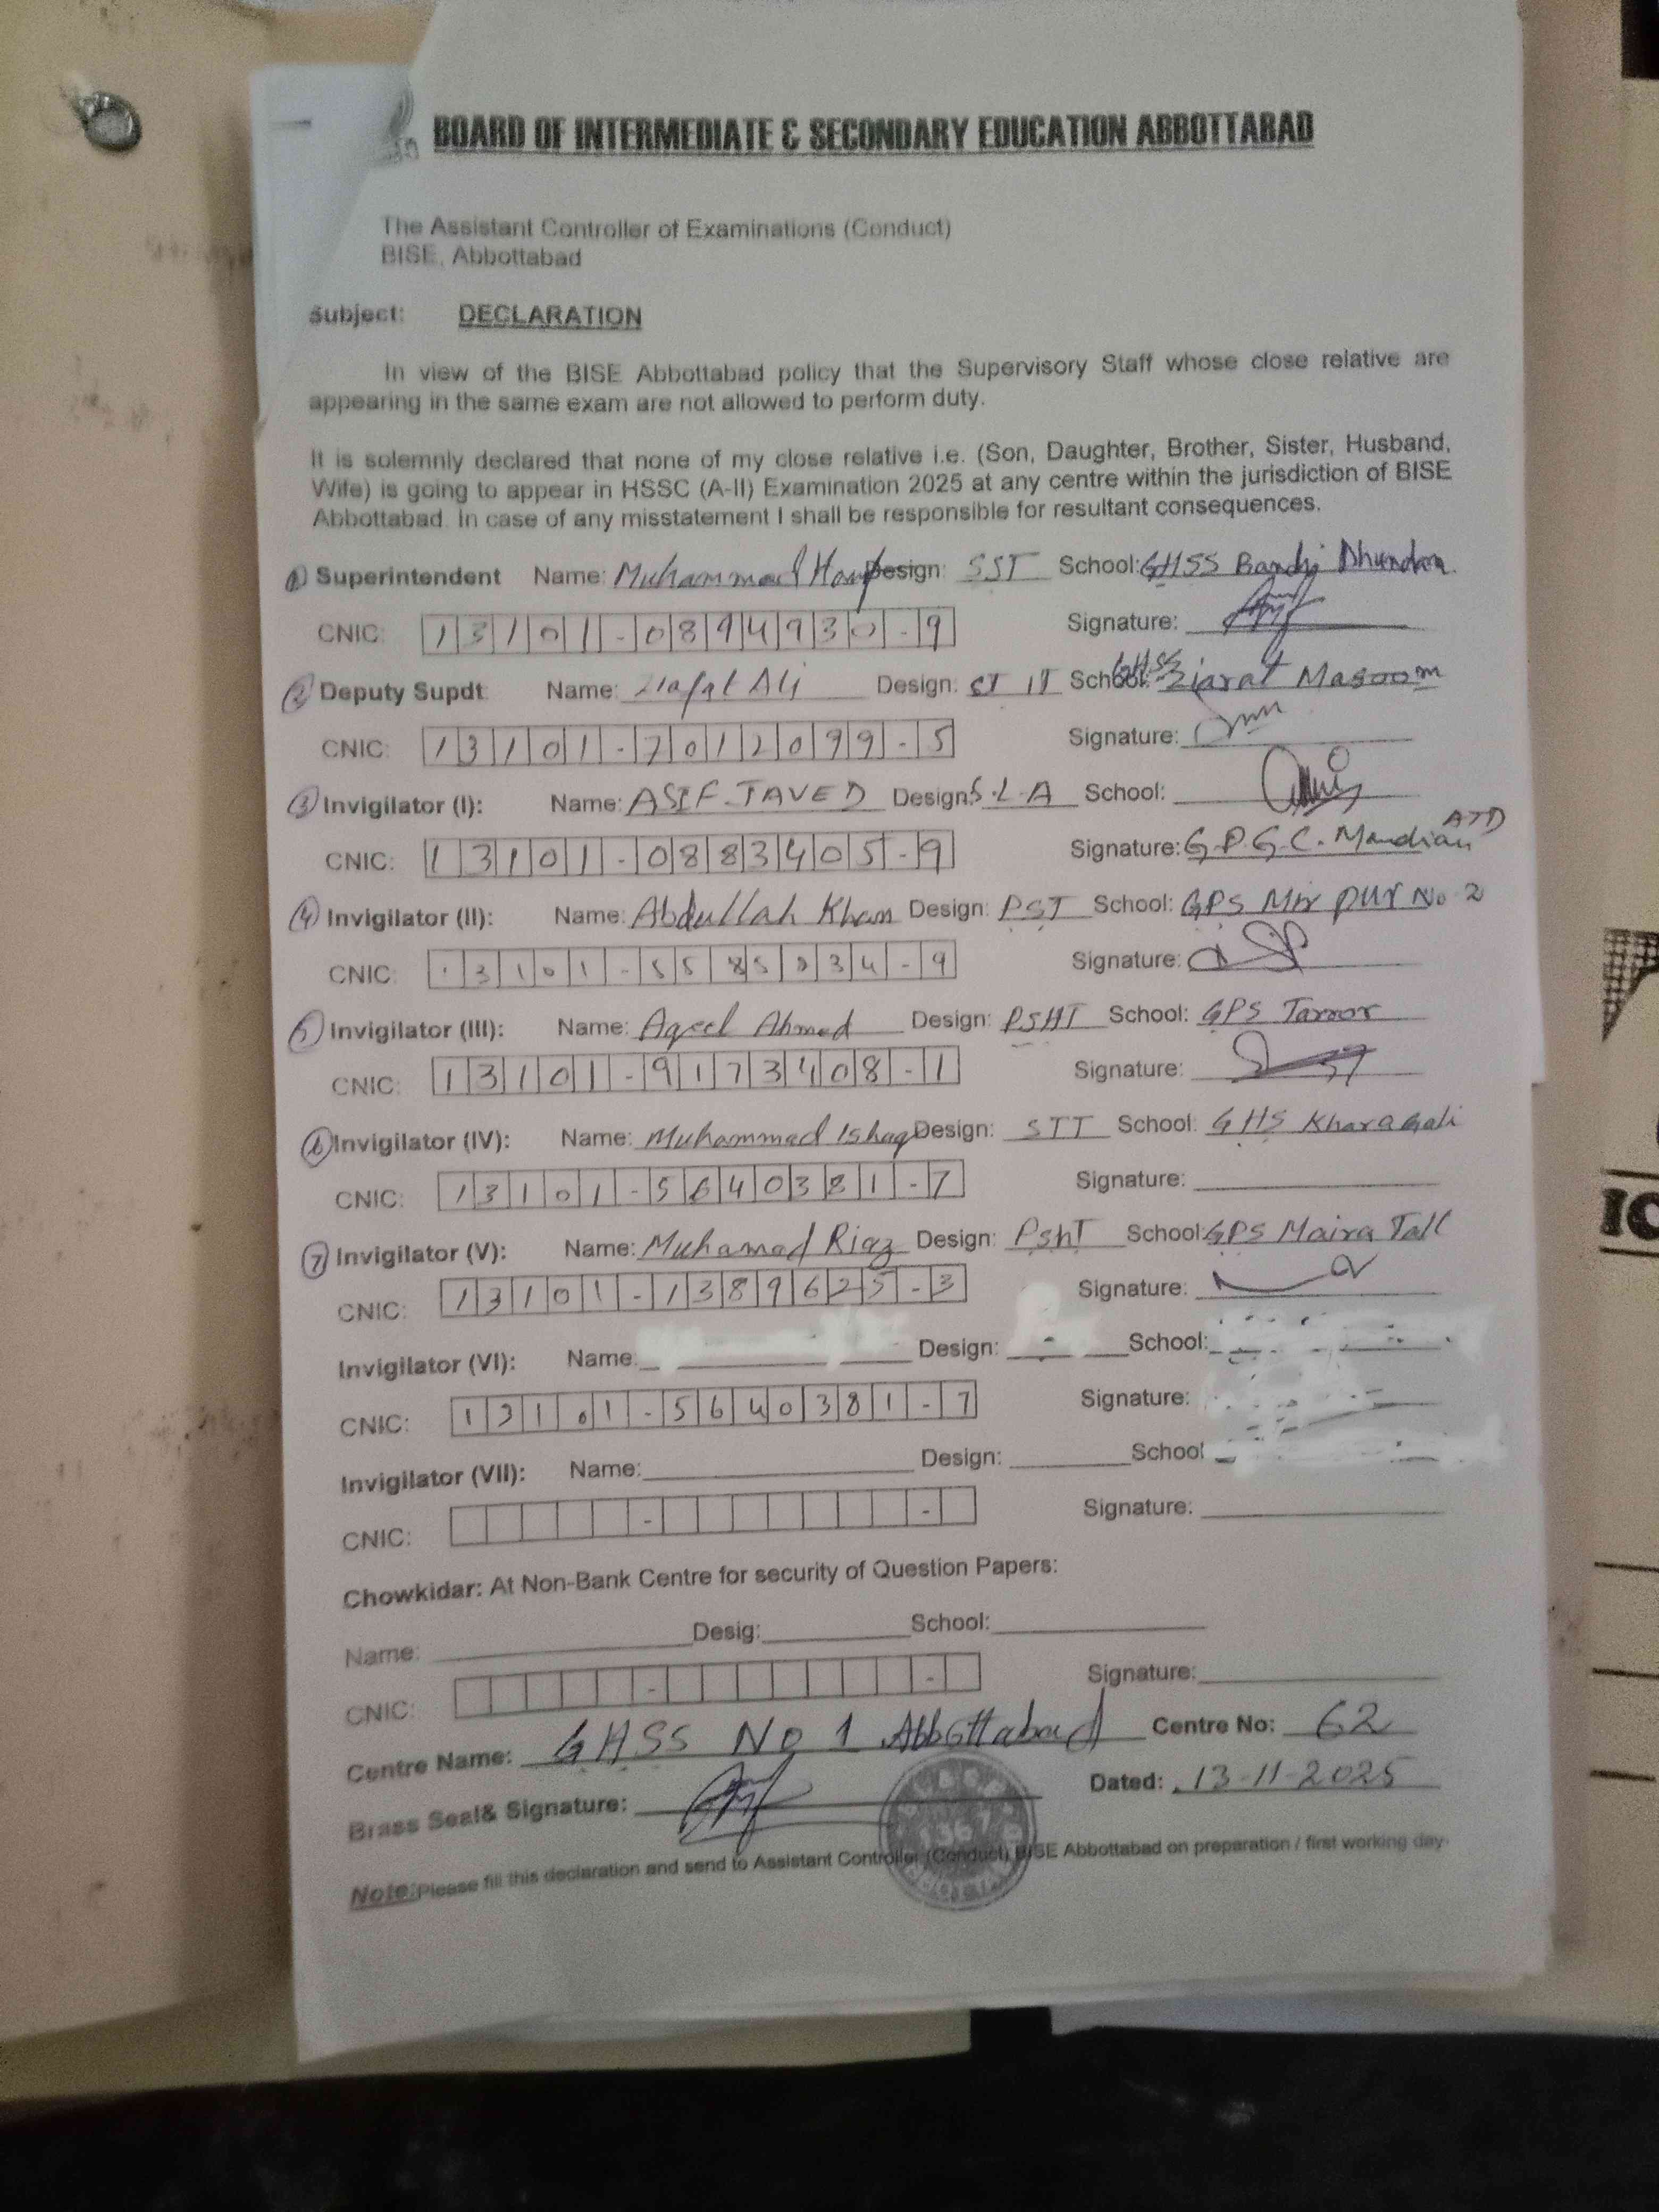 BOARD OF INTERMEDIATE & SECONDARY EDUCATION ABBOTTABAD
The Assistant Controller of Examinations (Conduct)
BISE, Abbottabad
Subject: DECLARATION
In view of the BISE Abbottabad policy that the Supervisory Staff whose close relative are
appearing in the same exam are not allowed to perform duty.
It is solemnly declared that none of my close relative i.e. (Son, Daughter, Brother, Sister, Husband,
Wife) is going to appear in HSSC (A-II) Examination 2025 at any centre within the jurisdiction of BISE
Abbottabad. In case of any misstatement I shall be responsible for resultant consequences.
1 Superintendent Name: Muhammad Design: SST School: GHSS Bandi Dhundan
CNIC: 13101-0894930-9 Signature:
2 Deputy Supdt Name: Ali Design: CT IT School: GHSS Ziarat Masoom
CNIC: 13101-7012099-5 Signature:
3 Invigilator (I): Name: ASIF JAVED Design: S.L.A School:
CNIC: 13101-0883405-9 Signature: G.P.G.C. Mandian ATD
4 Invigilator (II): Name: Abdullah Khan Design: PST School: GPS Mir pur No 2
CNIC: Signature:
5 Invigilator (III): Name: Aqeel Ahmed Design: PSHT School: GPS
CNIC: 13101-9173408-1 Signature:
6 Invigilator (IV): Name: Muhammad Ishaq Design: STT School: GHS Khara Gali
CNIC: 13101-5640381-7 Signature:
7 Invigilator (V): Name: Muhamad Riaz Design: PshT School: GPS Maira Tall
CNIC: 13101-1389625-3 Signature:
Invigilator (VI): Name: Design: School:
CNIC: 13101-5640381-7 Signature:
Invigilator (VII): Name: Design: School
CNIC: - - Signature:
Chowkidar: At Non-Bank Centre for security of Question Papers:
Name: Desig: School:
CNIC: - - Signature:
Centre Name: GHSS No 1 Abbottabad Centre No: 62
Brass Seal& Signature: Dated: 13-11-2025
1367
Note: Please fill this declaration and send to Assistant Controller (Conduct) BISE Abbottabad on preparation / first working day.